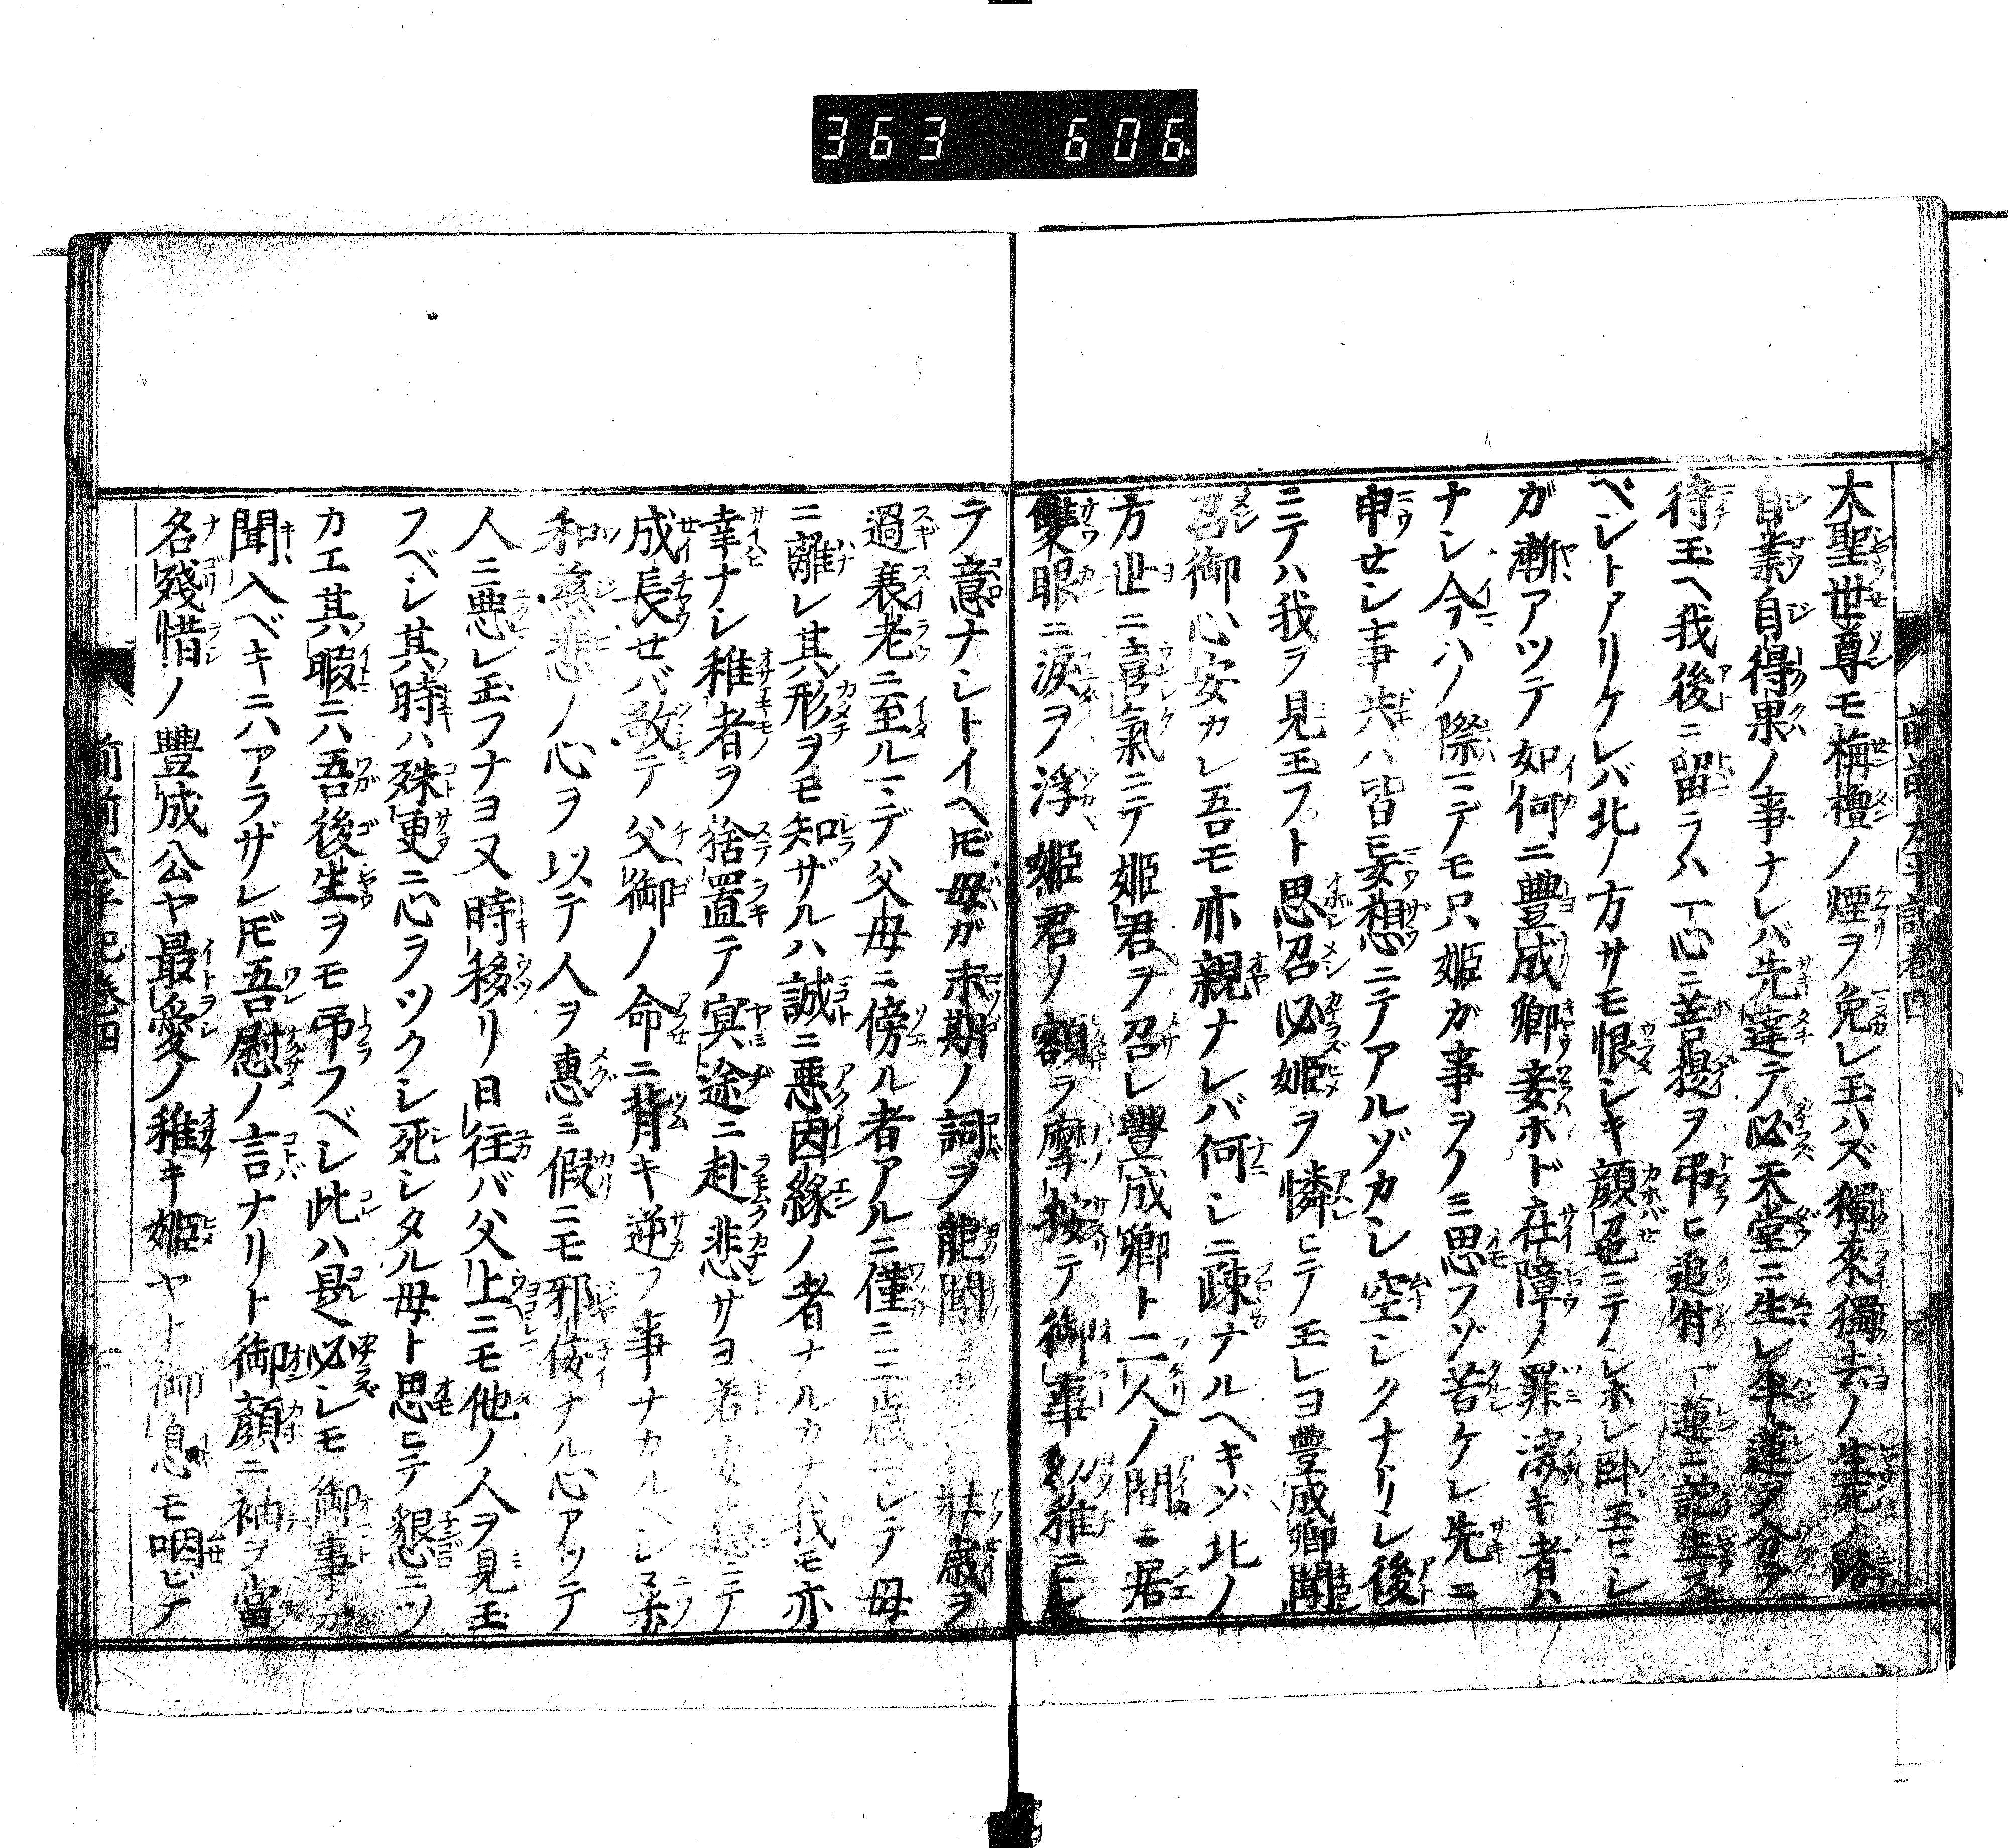 363 606
大聖世尊モ栴檀ノ煙ヲ免レ玉ハズ獨來獨去ノ生死ノ路
自業自得果ノ事ナレバ先達テ必天堂ニ生レ半蓮ヲ分テ
待玉ヘ我後ニ留ラハ一心ニ菩提ヲ弔ヒ追付一蓮ニ託生ス
ベシトアリケレバ北ノ方サモ恨シキ顔色ニテノレホレ臥玉ヒシ
ガ漸アツテ如何ニ豐成卿妾ホド在障ノ罪深キ者ハ
ナシ今ハノ際マデモ只姫ガ事ヲノミ思フゾ苦ケレ先ニ
申セシ事共ハ皆妄想ニテアルゾカシ空シクナリシ後
ニテハ我ヲ見玉フト思召必姫ヲ憐ヒテ玉レヨ豐成卿聞
召御心安カレ吾モ亦親ナレバ何シニ疎ナルヘキゾ北ノ
方世ニ喜氣ニテ姫君ヲ召レ豐成卿ト二人ノ間ニ居
雙眼ニ涙ヲ浮姫君ノ額ヲ摩挲テ御事ハ稚ニシ
テ意ナシトイヘ𪜈母ガ末期ノ詞ヲ能聞 壯歳ヲ
過衰老ニ至ルマデ父母ニ傍ル者アルニ僅ニ三歳ニシテ母
ニ離レ其形ヲモ知ザルハ誠ニ悪因緣ノ者ナルカナ我モ亦
幸ナシ稚者ヲ捨置テ冥途ニ赴悲サヨ若安穩ニテ
成長セバ敬テ父御ノ命ニ背キ逆フ事ナカルヘシマ
和慈悲ノ心ヲ以テ人ヲ惠ミ假ニモ邪侫ナル心アツテ
人ニ悪レ玉フナヨ又時移リ日往バ父上ニモ他ノ人ヲ見玉
フベシ其時ハ殊更ニ心ヲツクシ死シタル母ト思ヒテ懇ニツ
カエ其暇ニハ吾後生ヲモ弔フベシ此ハ是必シモ御事ガ
聞入ベキニハアラザレ𪜈吾慰ノ言ナリト御顔ニ袖ヲ當
各殘惜ノ豐成公ヤ最愛ノ稚キ姫ヤト御息モ咽ビテ
前前太平記卷四